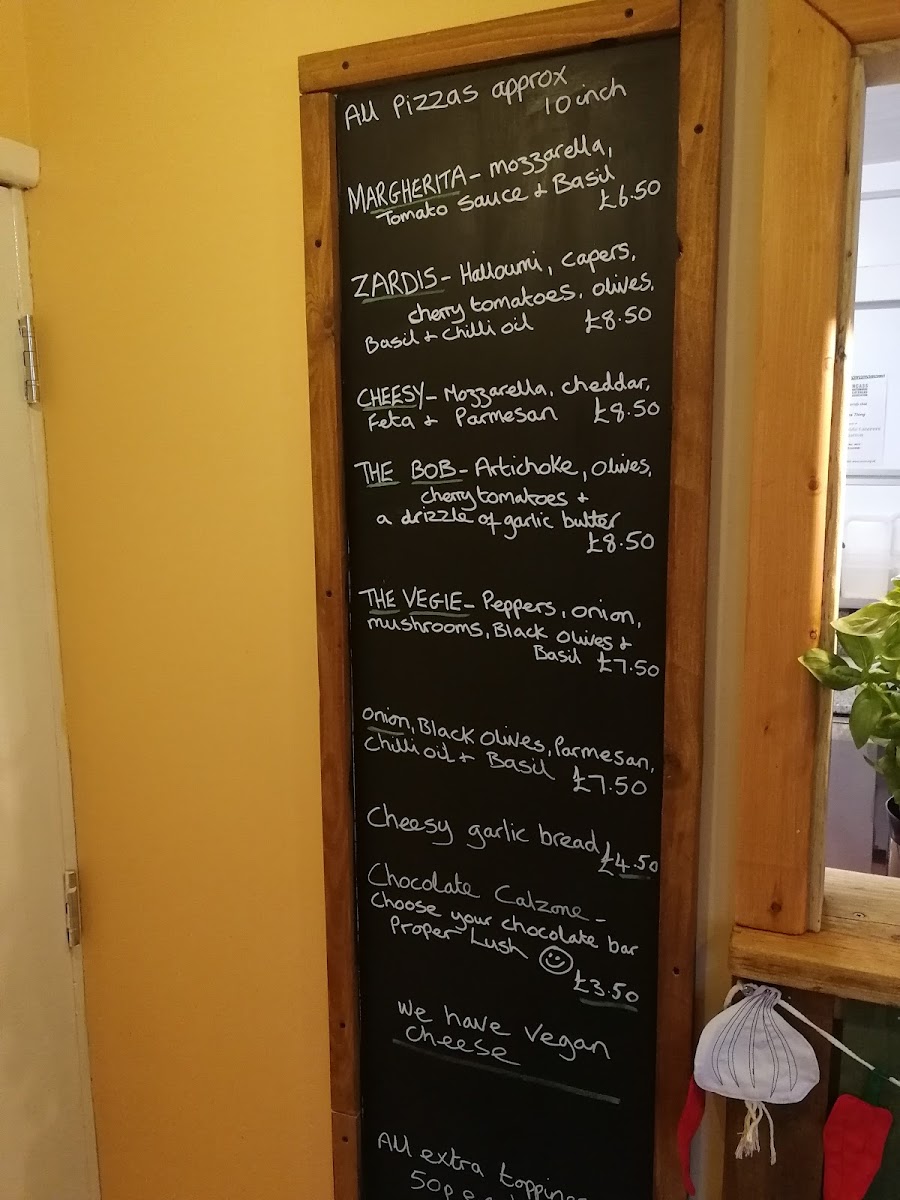 All Pizzas approx
10 inch
MARGHERITA - mozzarella,
Tomato sauce & Basil
£6.50
ZARDIS - Halloumi, capers,
cherry tomatoes, olives,
Basil & chilli oil £8.50
CHEESY - Mozzarella, cheddar,
Feta & Parmesan £8.50
THE BOB - Artichoke, olives,
cherry tomatoes &
a drizzle of garlic butter
£8.50
THE VEGIE - Peppers, onion,
mushrooms, Black olives &
Basil £7.50
onion, Black olives, Parmesan,
Chilli oil & Basil £7.50
Cheesy garlic bread £4.50
Chocolate Calzone -
Choose your chocolate bar
Proper Lush
£3.50
We have Vegan
cheese
All extra
50p